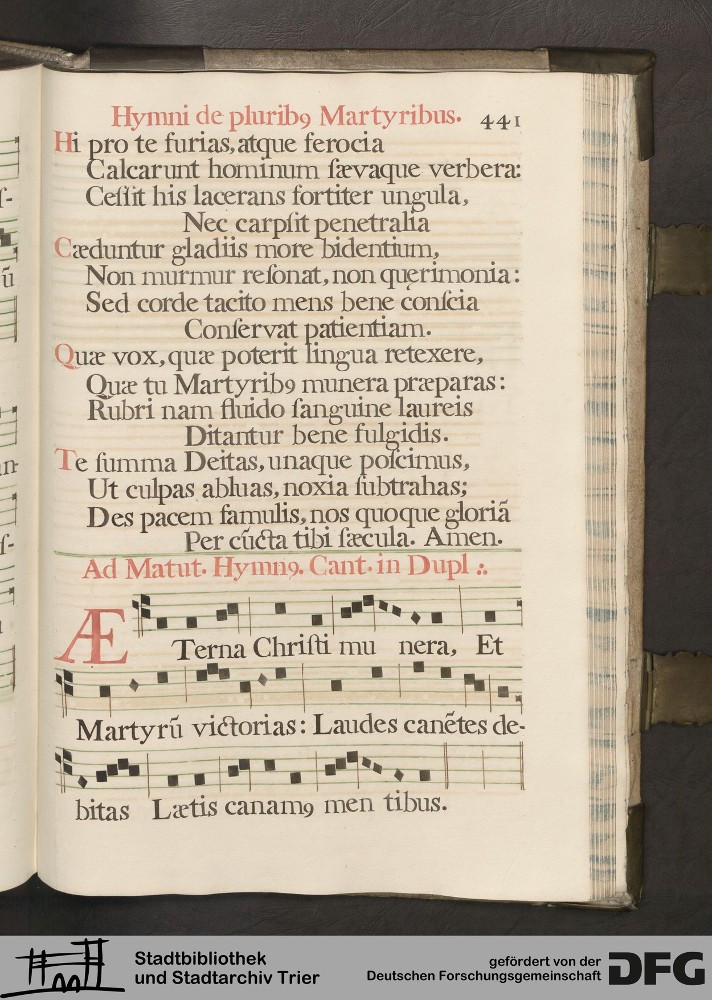 Hymni de pluribꝯ Martyribus. 441
Hi pro te furias, atque ferocia
Calcarunt hominum ſævaque verbera:
Ceſſit his lacerans fortiter ungula,
Nec carpſit penetralia
Cæduntur gladiis more bidentium,
Non murmur reſonat, non querimonia:
Sed corde tacito mens bene conſcia
Conſervat patientiam.
Quæ vox, quæ poterit lingua retexere,
Quæ tu Martyribꝯ munera præparas:
Rubri nam fluido ſanguine laureis
Ditantur bene fulgidis.
Te ſumma Deitas, unaque poſcimus,
Ut culpas abluas, noxia ſubtrahas;
Des pacem famulis, nos quoque gloriã
Per cũcta tibi ſæcula. Amen.
Ad Matut. Hymnꝯ. Cant. in Dupl ∴
ÆTerna Chriſti mu nera, Et
Martyrũ victorias: Laudes canẽtes de-
bitas Lætis canamꝯ men tibus.
ſ-
ũ
an-
ſ-
Stadtbibliothek
und Stadtarchiv Trier
gefördert von der
Deutschen Forschungsgemeinschaft
DFG